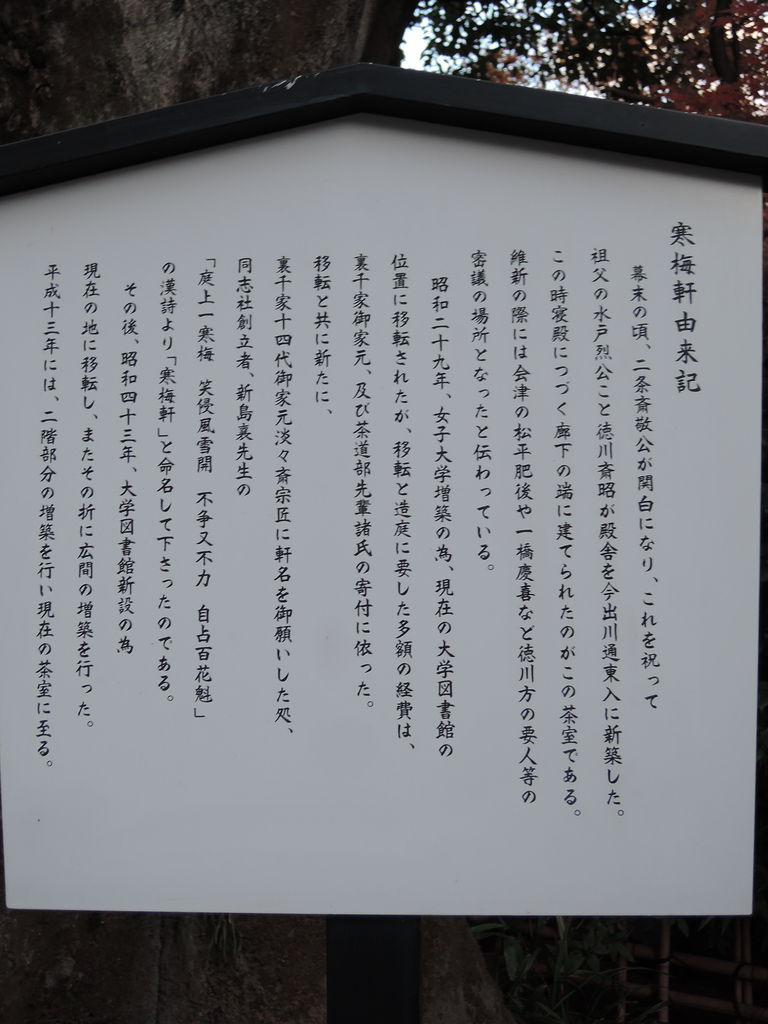 寒梅軒由来記
幕末の頃、二条斎敬公が関白になり、これを祝って
祖父の水戸烈公こと徳川斎昭が殿舎を今出川通東入に新築した。
この時寝殿につづく廊下の端に建てられたのがこの茶室である。
維新の際には会津の松平肥後や一橋慶喜など徳川方の要人等の
密議の場所となったと伝わっている。
昭和二十九年、女子大学増築の為、現在の大学図書館の
位置に移転されたが、移転と造庭に要した多額の経費は、
裏千家御家元、及び茶道部先輩諸氏の寄付に依った。
移転と共に新たに、
裏千家十四代御家元淡々斎宗匠に軒名を御願いした処、
同志社創立者、新島襄先生の
「庭上一寒梅　笑侵風雪開　不争又不力　自占百花魁」
の漢詩より「寒梅軒」と命名して下さったのである。
その後、昭和四十三年、大学図書館新設の為
現在の地に移転し、またその折に広間の増築を行った。
平成十三年には、二階部分の増築を行い現在の茶室に至る。